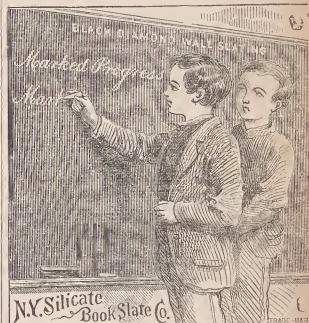 BLACK DIAMOND WALL SLATING
Marked Progress
Mar
N.Y. Silicate
Book Slate Co.
TRADE-MAR